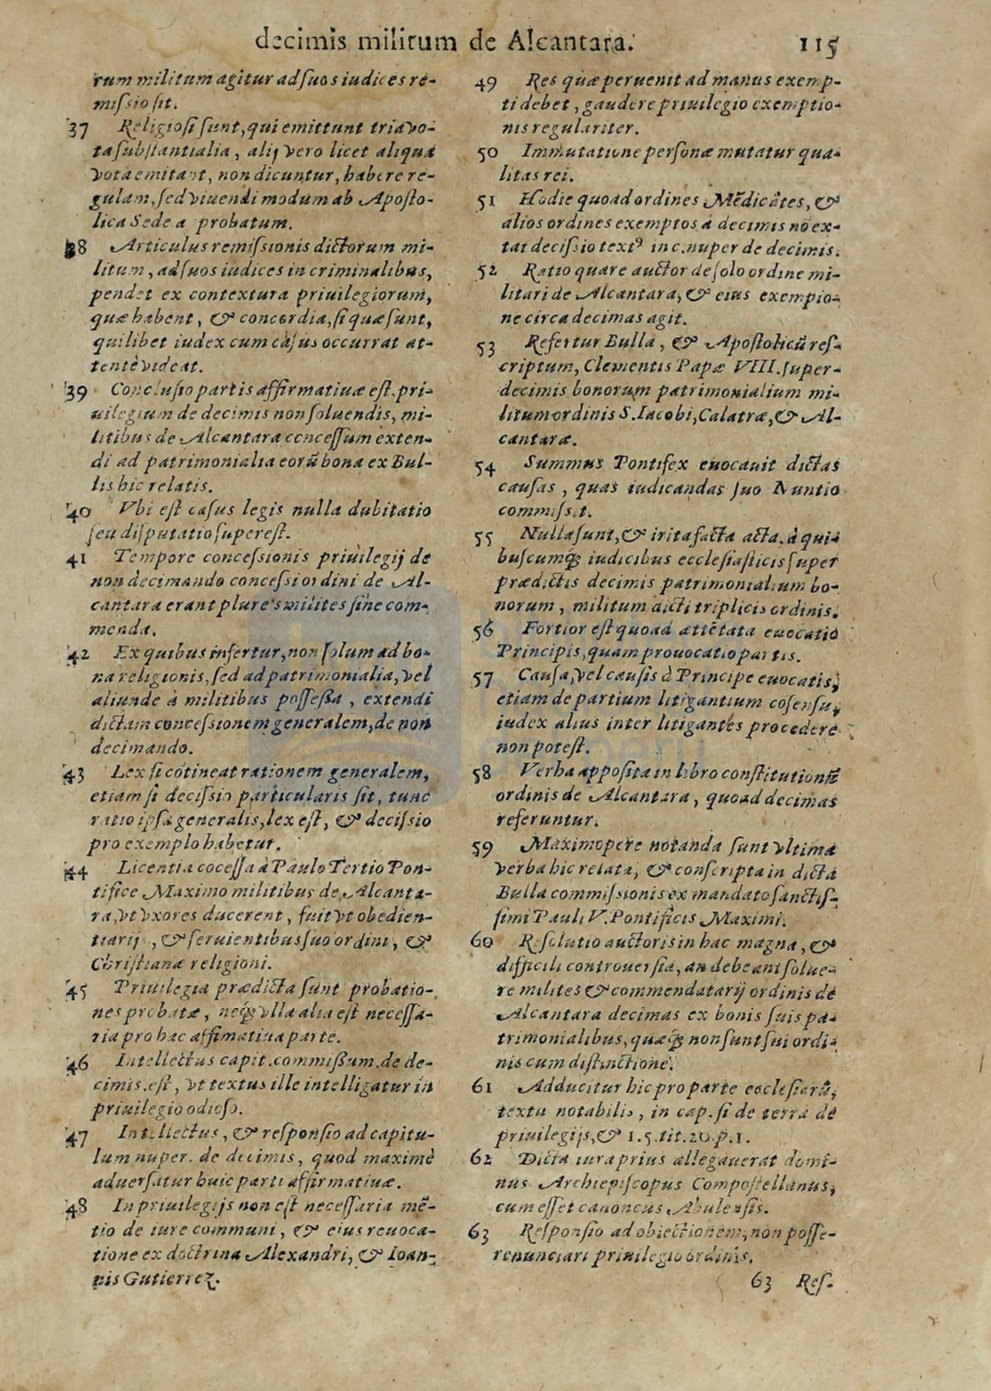 decimis militum de Alcantara. 115
rum militum agitur ad suos iudices re-
missio sit.
37 Religiosi sunt, qui emittunt tria vo-
ta substantialia, alij vero licet aliqua
vota emitant, non dicuntur, habere re-
gulam, sed viuendi modum ab Aposto-
lica Sede a probatum.
38 Articulus remissionis dictorum mi-
litum, ad suos iudices in criminalibus,
pendet ex contextura priuilegiorum,
quæ habent, & concordia, si quæ sunt,
quilibet iudex cum casus occurrat at-
tentè videat.
39 Conclusio partis affirmatiuæ est. pri-
uilegium de decimis non soluendis, mi-
litibus de Alcantara concessum exten-
di ad patrimonialia eorū bona ex Bul-
lis hic relatis.
40 Vbi est casus legis nulla dubitatio
seu disputatio superest.
41 Tempore concessionis priuilegij de
non decimando concessi ordini de Al-
cantara erant plures milites sine com-
menda.
42 Ex quibus infertur, non solum ad bo-
na religionis, sed ad patrimonialia, vel
aliunde à militibus possessa, extendi
dictam concessionem generalem, de non
decimando.
43 Lex si cōtineat rationem generalem,
etiam si decissio particularis sit, tunc
ratio ipsa generalis, lex est, & decissio
pro exemplo habetur.
44 Licentia cōcessa à Paulo Tertio Pon-
tifice Maximo militibus de Alcanta-
ra, vt vxores ducerent, fuit vt obedien-
tiarij, & seruientibus suo ordini, &
Christianæ religioni.
45 Priuilegia prædicta sunt probatio-
nes probatæ, neq; vlla alia est necessa-
ria pro hac affimatiua parte.
46 Intellectus capit. commissum. de de-
cimis. est, vt textus ille intelligatur in
priuilegio odioso.
47 Intellectus, & responsio ad capitu-
lum nuper. de decimis, quod maximè
aduersatur huic parti affirmatiuæ.
48 In priuilegijs non est necessaria mē-
tio de iure communi, & eius reuoca-
tione ex doctrina Alexandri, & Ioan-
nis Gutierrez.
49 Res quæ peruenit ad manus exemp-
ti debet, gaudere priuilegio exemptio-
nis regulariter.
50 Immutatione personæ mutatur qua-
litas rei.
51 Hodie quoad ordines Mēdicātes, &
alios ordines exemptos à decimis nō ex-
tat decissio textꝰ in c. nuper de decimis.
52 Ratio quare auctor de solo ordine mi-
litari de Alcantara, & eius exempio-
ne circa decimas agit.
53 Refertur Bulla, & Apostolicū res-
criptum, Clementis Papæ VIII. super
decimis bonorum patrimonialium mi-
litum ordinis S. Iacobi, Calatræ, & Al-
cantaræ.
54 Summus Pontifex euocauit dictas
causas, quas iudicandas suo Nuntio
commissit.
55 Nulla sunt, & irita facta acta. à qui-
buscumq; iudicibus ecclesiasticis super
prædictis decimis patrimonialium bo-
norum, militum dicti triplicis ordinis.
56 Fortior est quoad attētata euocatio
Principis, quam prouocatio partis.
57 Causa, vel causis à Principe euocatis,
etiam de partium litigantium cōsensu,
iudex alius inter litigantes procedere
non potest.
58 Verba apposita in libro constitutionū
ordinis de Alcantara, quoad decimas
referuntur.
59 Maximopere notanda sunt vltima
verba hic relata, & conscripta in dicta
Bulla commissionis ex mandato sanctis-
simi Pauli V. Pontificis Maximi.
60 Resolutio auctoris in hac magna, &
difficili controuersia, an debeant solue-
re milites & commendatarij ordinis de
Alcantara decimas ex bonis suis pa-
trimonialibus, quæq; non sunt sui ordi-
nis cum distinctione.
61 Adducitur hic pro parte ecclesiarū,
textu notabilis, in cap. si de terra de
priuilegijs, & l. 5. tit. 20. p. 1.
62 Dicta iura prius allegauerat domi-
nus Archiepiscopus Compostellanus,
cum esset canoncus Abulensis.
63 Responsio ad obiectionem, non posse-
renunciari priuilegio ordinis.
63 Res-